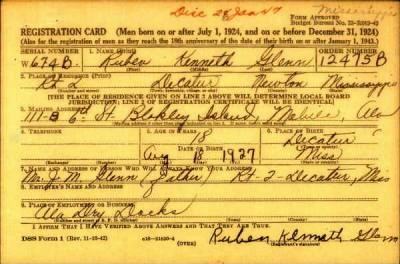 Mississippi
Form Approved
Budget Bureau No. 33-R249-42
REGISTRATION CARD (Men born on or after July 1, 1924, and on or before December 31, 1924)
(Also for the registration of men as they reach the 18th anniversary of the date of their birth on or after January 1, 1943.)
SERIAL NUMBER 1. NAME (Print) ORDER NUMBER
W 674B Ruben Kenneth Glenn 12475B
2. PLACE OF RESIDENCE (Print)
Rt 2 Decatur Newton Mississippi
[THE PLACE OF RESIDENCE GIVEN ON LINE 2 ABOVE WILL DETERMINE LOCAL BOARD
JURISDICTION; LINE 2 OF REGISTRATION CERTIFICATE WILL BE IDENTICAL]
3. MAILING ADDRESS
111-B 6th St. Blakley Island, Mobile, Ala
4. TELEPHONE 5. AGE IN YEARS 6. PLACE OF BIRTH
18 Decatur
DATE OF BIRTH
Aug 18 1927 Miss
7. NAME AND ADDRESS OF PERSON WHO WILL ALWAYS KNOW YOUR ADDRESS
Mr. J. M. Glenn (Father) Rt-2-Decatur, Miss
8. EMPLOYER'S NAME AND ADDRESS
Ala Dry Docks
9. PLACE OF EMPLOYMENT OR BUSINESS
I AFFIRM THAT I HAVE VERIFIED ABOVE ANSWERS AND THAT THEY ARE TRUE.
DSS Form 1 (Rev. 11-16-42) (OVER) Ruben Kenneth Glenn
(Registrant's signature)